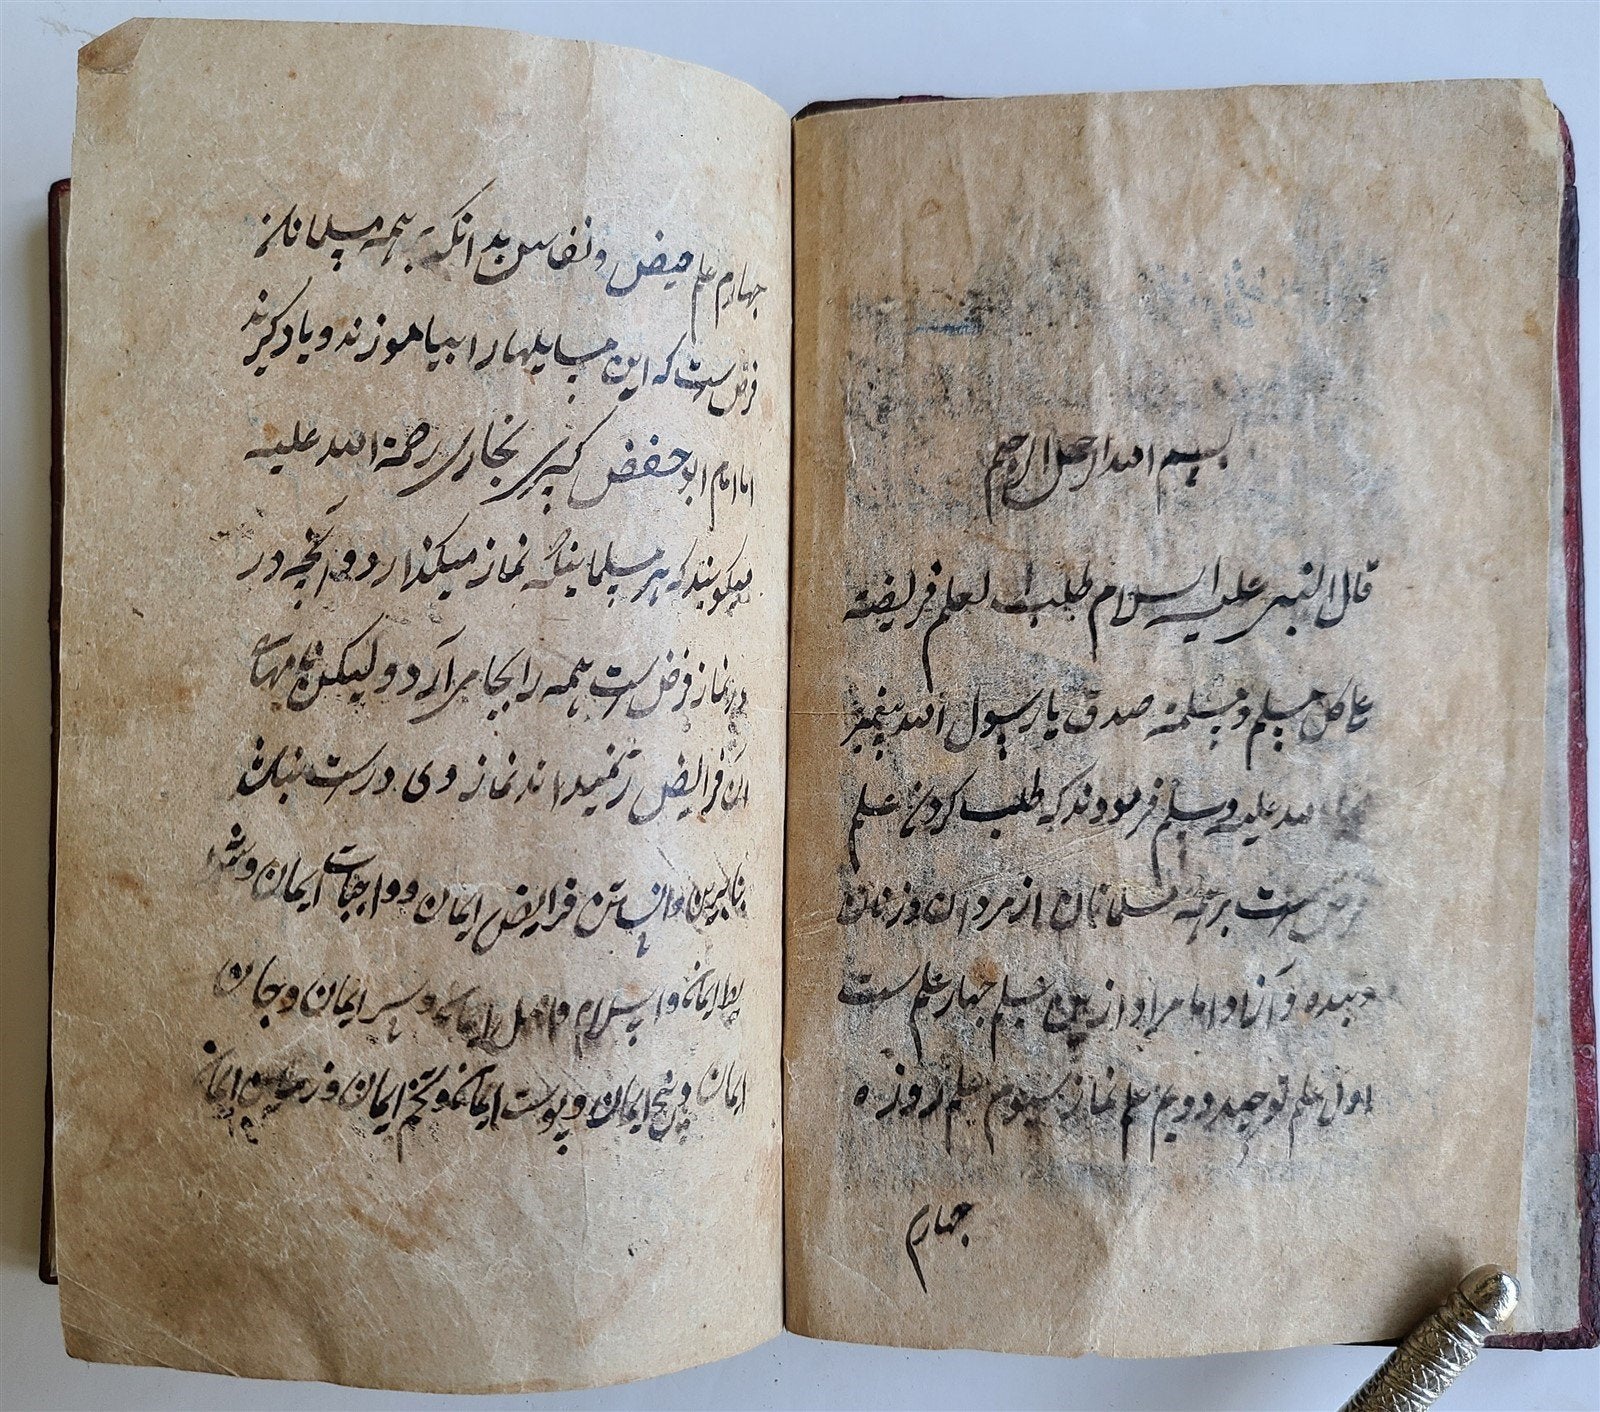 بسم الله الرحمن الرحیم
قال النبی علیه السلام طلب العلم فریضته
علی کل مسلم و مسلمة صدق یا رسول الله پیغمبر
الله علیه وسلم فرمودند که طلب کردن علم
فرض است بر همه مسلمانان از مردان و زنان
و بنده و آزاد اما مراد از این علم چهار علم ست
اول علم توحید دویم علم نماز سیوم علم روزه
چهارم
چهارم علم حیض و نفاس بدانکه بر همه مسلمانان
فرض ست که این مسایلها را بیاموزند و یاد گیرند
اما امام ابو حفض کبیر بخاری رحمة الله علیه
میکویند که هر مسلمانیکه نماز میکذارد و آنچه در
در نماز فرض است همه را بجا می آرد و لیکن نامهای
آن فرایض را نمیداند نماز وی درست نباشد
بنابرین دانستن فرایض ایمان و واجبات ایمان و شر
یط ایمان و اسلام و اصل ایمان و سر ایمان و جان
ایمان و بیخ ایمان و پوست ایمان و تخم ایمان و زمین ایمان